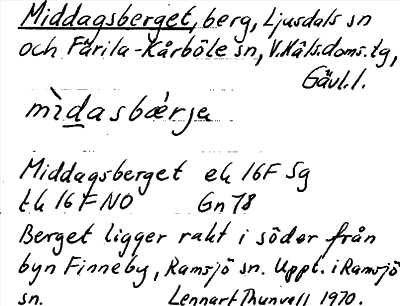 Middagsberget, berg, Ljusdals sn
och Färila-Kårböle sn, V.Häls.doms.lg,
Gävl.l.
mìdasbærje
Middagsberget ek 16F Sg
tk 16F NO Gn 78
Berget ligger rakt i söder från
byn Finneby, Ramsjö sn. Uppt. i Ramsjö
sn. Lennart Thunvall 1970.